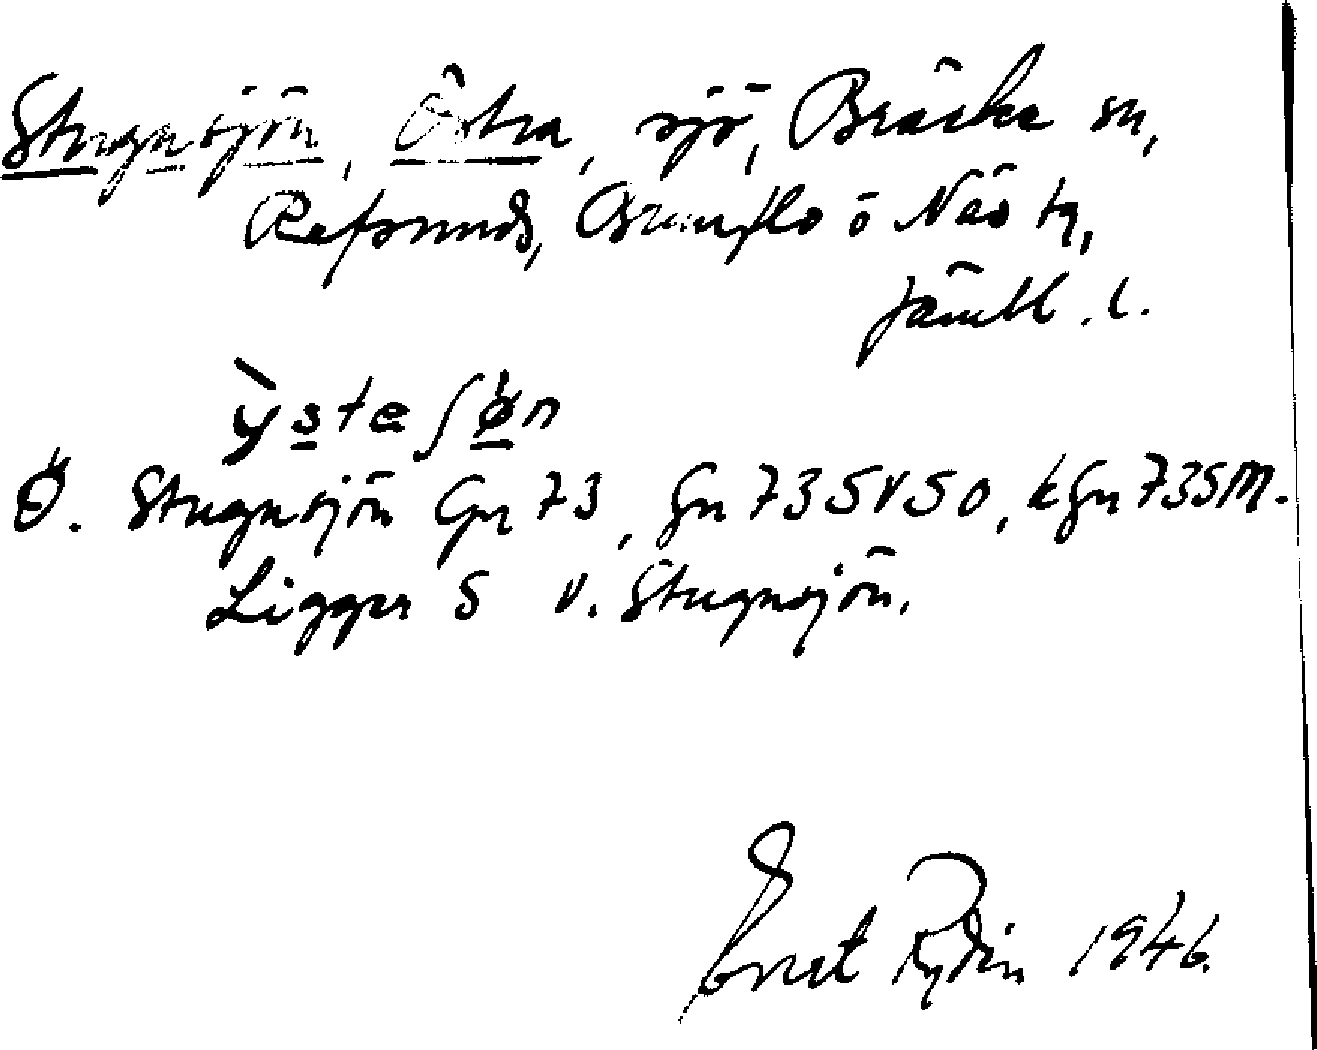 Stugusjön, Östra, sjö, Bräcke sn,
Refsunds, Brunflo o Näs tg,
Jämtl. l.
ỳste ʃøn
Ö. Stugusjön Gn 73, Gn 73SVSO, kGn 73SM.
Ligger S V. Stugusjön.
Ernst Rydin 1946.